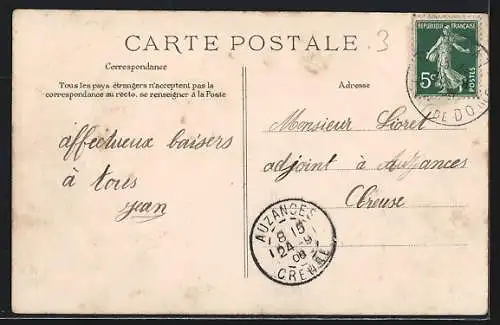 CARTE POSTALE
3
REPUBLIQUE FRANÇAISE
5c
POSTES
Correspondance
Tous les pays étrangers n'acceptent pas la
correspondance au recto. se renseigner à la Poste
Adresse
affectueux baisers
à tous
Jean
Monsieur Lioret
adjoint à Auzances
Creuse
AUZANCES
8 15
24 -9
08
CREUSE
DE-DOME